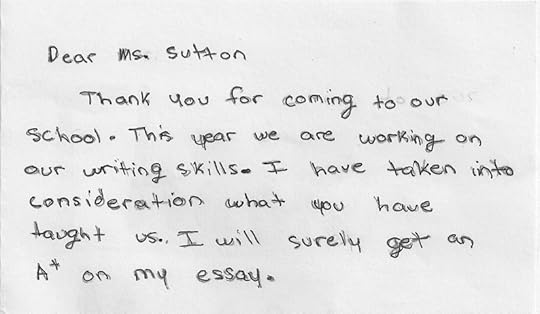 Dear Ms. Sutton
Thank you for coming to our
school. This year we are working on
our writing skills. I have taken into
consideration what you have
taught us. I will surely get an
A* on my essay.